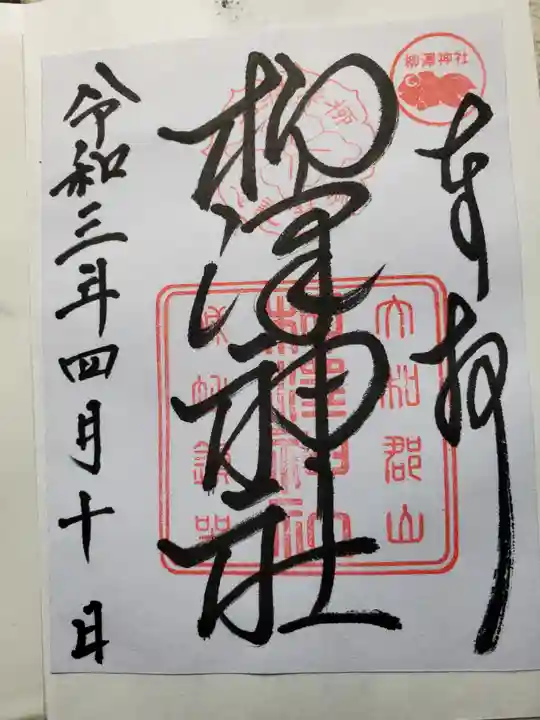 奉拝
柳澤神社
柳澤神社
大和郡山
柳澤神社
城址鎮守
令和三年四月十日